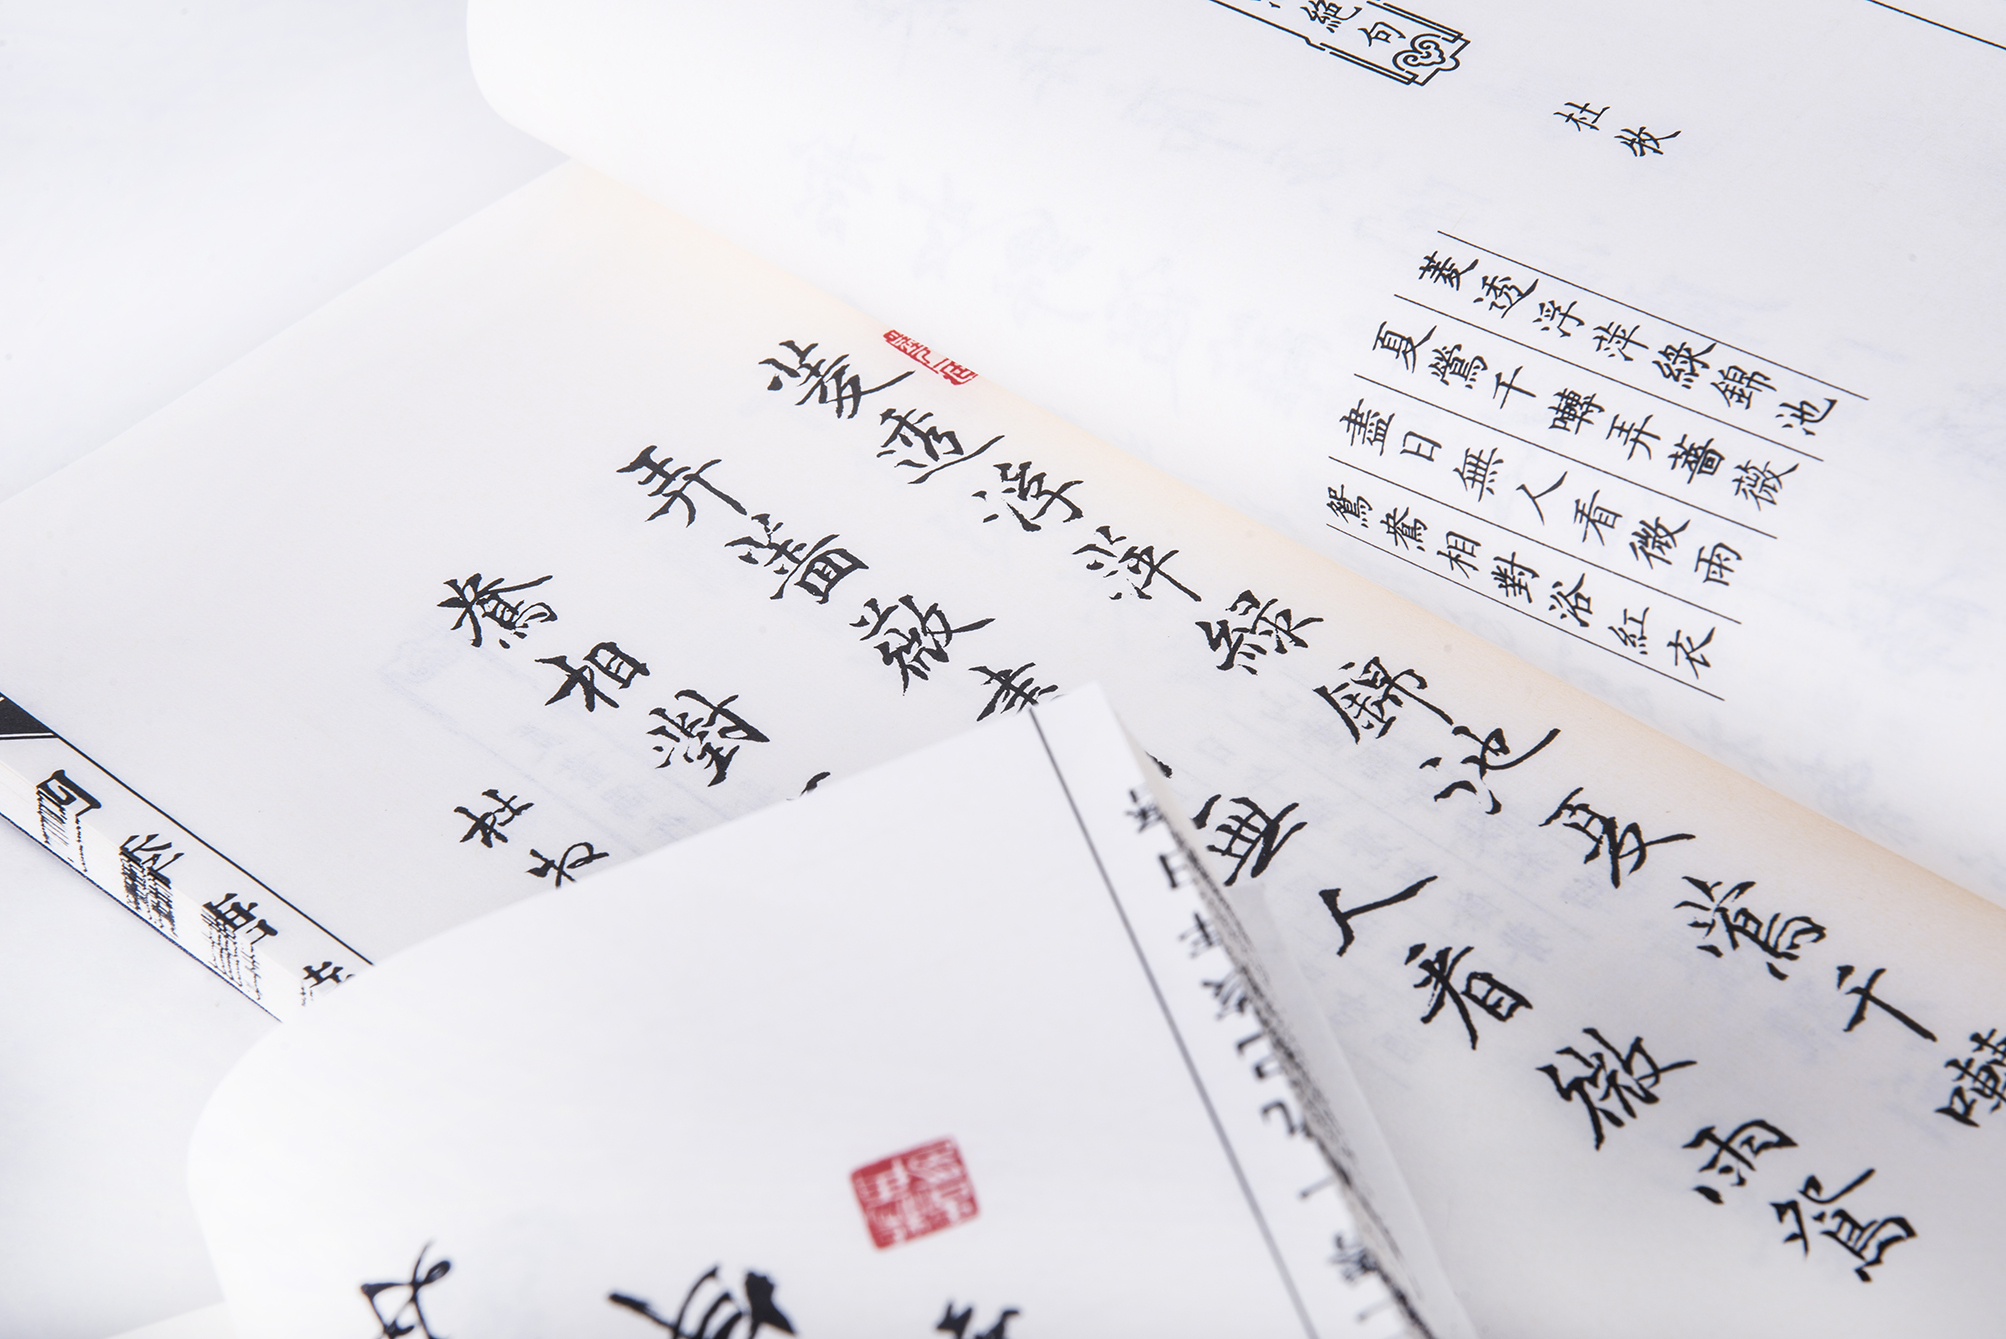 絕句
杜牧
菱透浮萍綠錦池
夏鶯千囀弄薔薇
盡日無人看微雨
鴛鴦相對浴紅衣
菱透浮萍綠錦池夏鶯千囀
弄薔薇盡無人看微雨鴛
鴦相對
杜牧